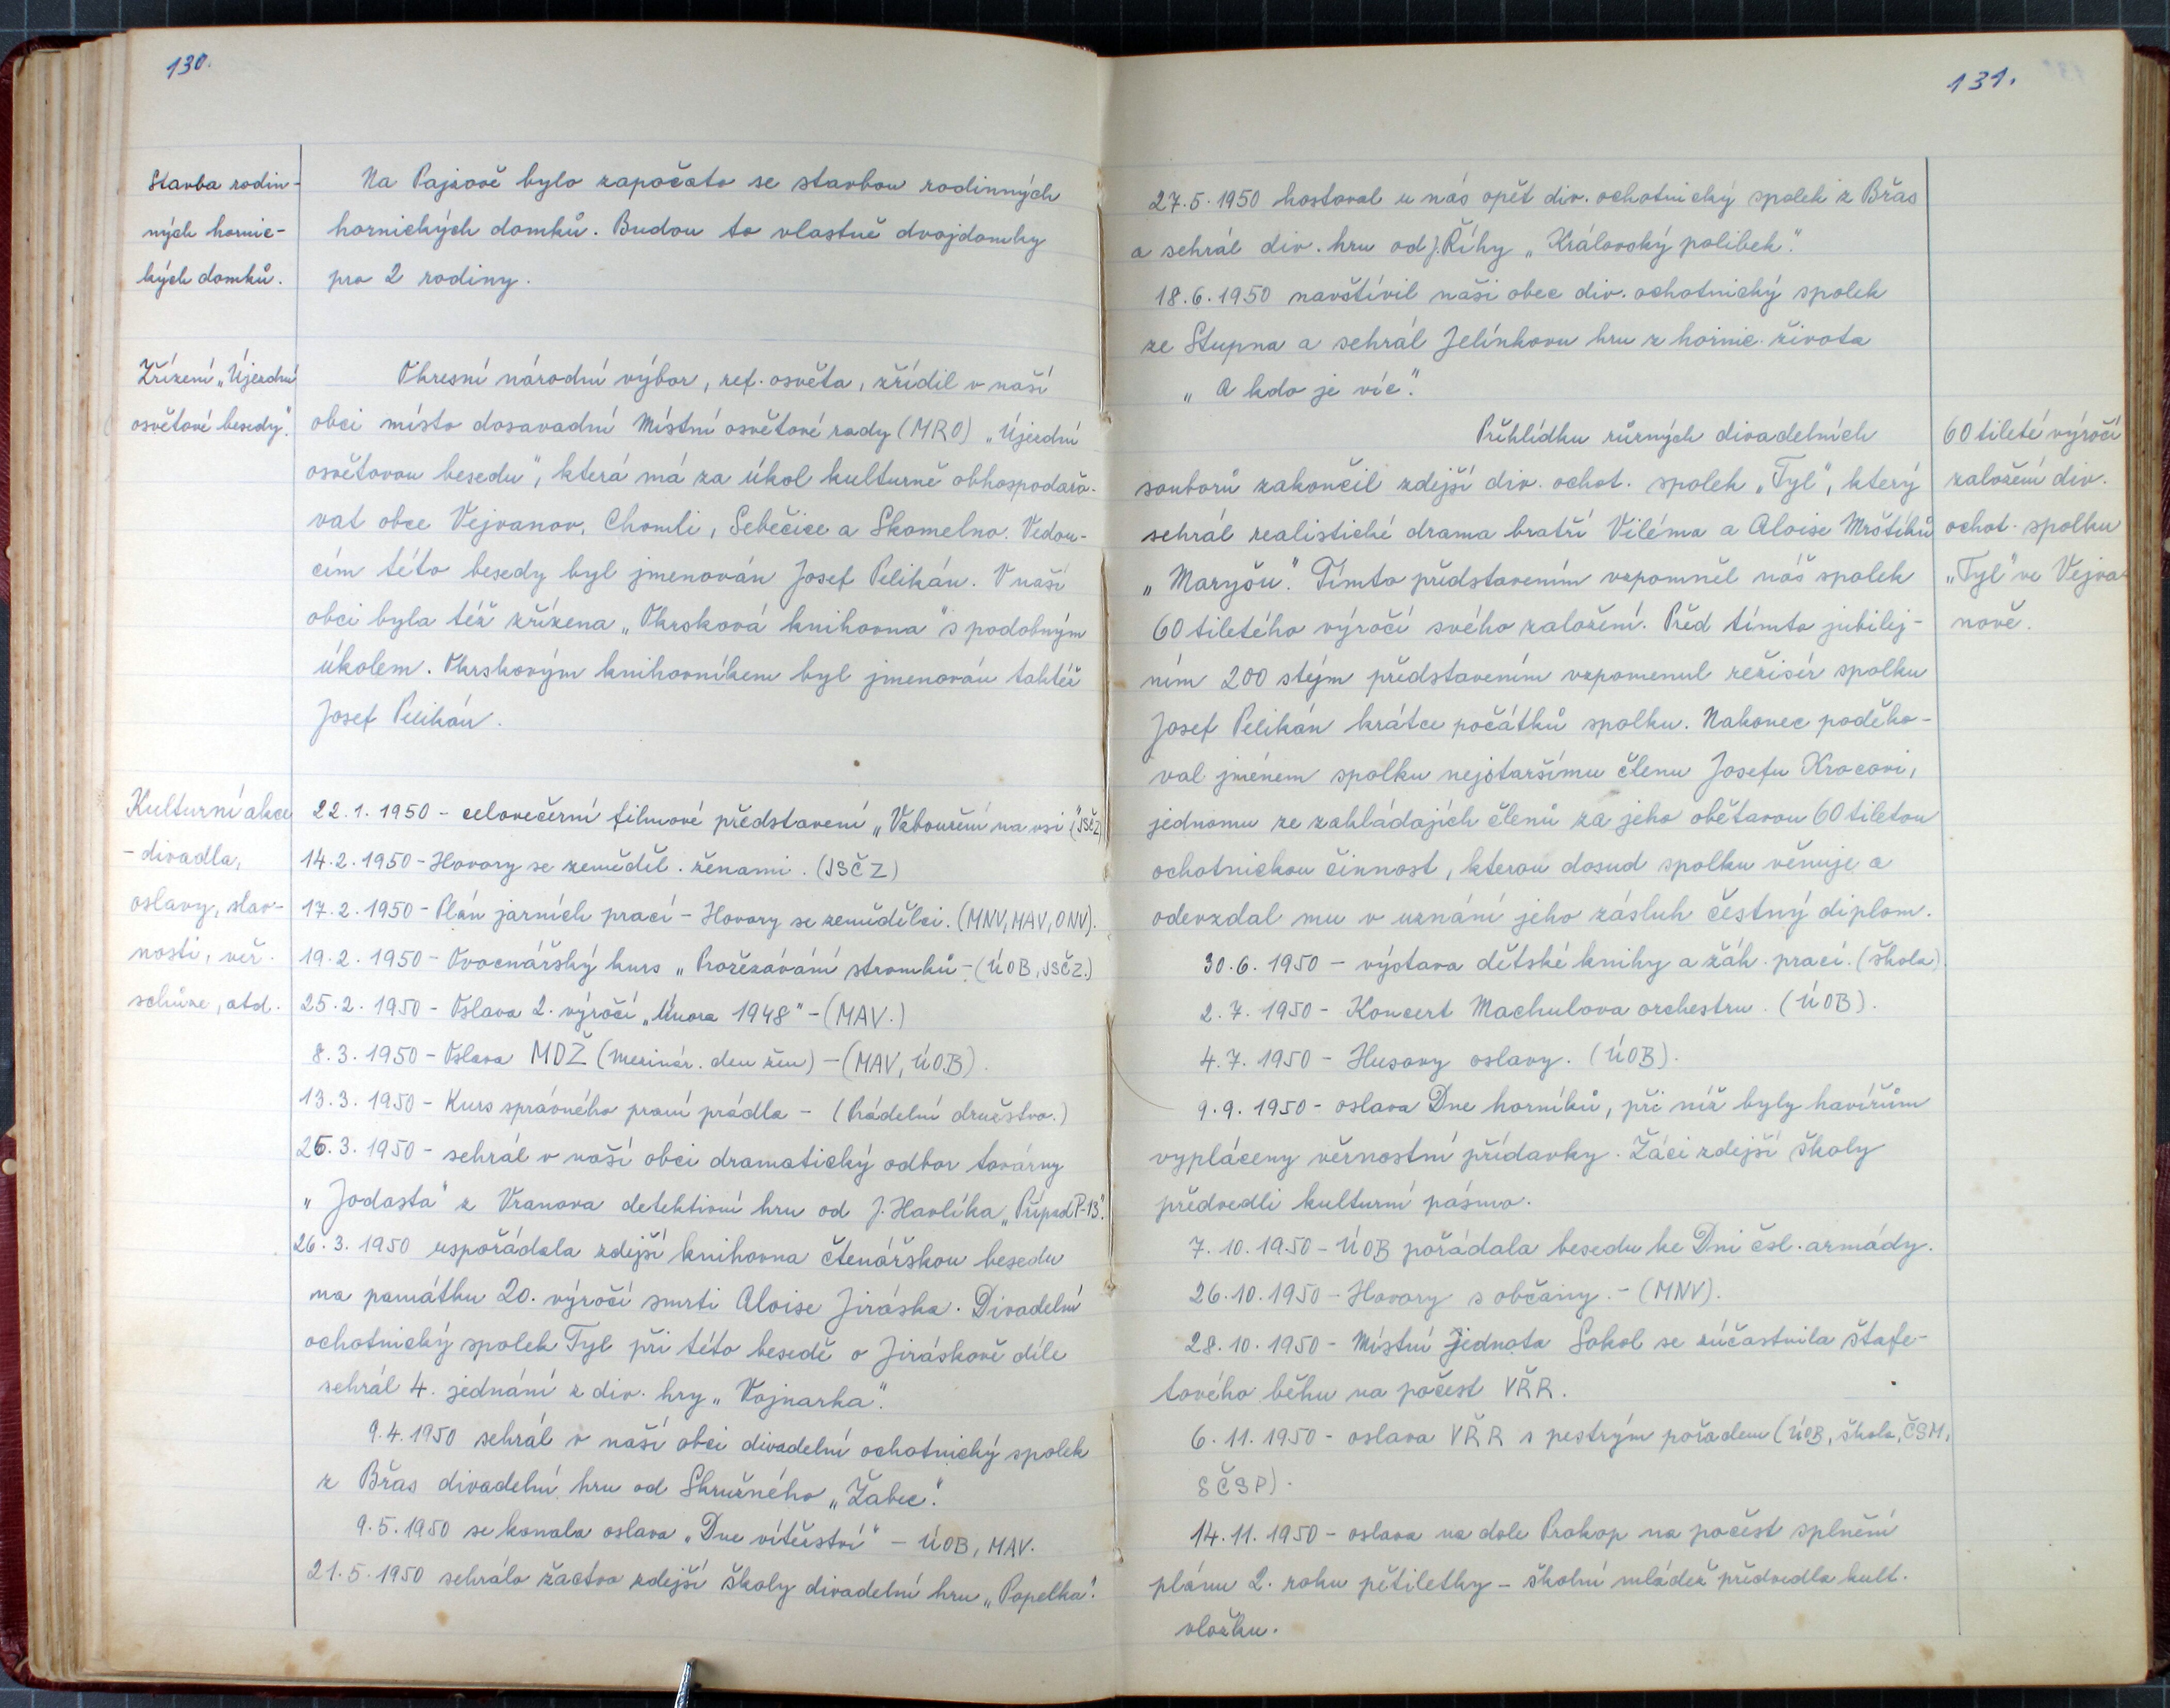 130.
Stavba rodin-
ných hornic-
kých domků.
Na Pajzově bylo započato se stavbou rodinných
hornických domků. Budou to vlastně dvojdomky
pro 2 rodiny.
Zřízení „Újezdní
osvětové besedy".
Okresní národní výbor, ref. osvěta, zřídil v naší
obci místo dosavadní Místní osvětové rady (MRO) „Újezdní
osvětovou besedu", která má za úkol kulturně obhospodařo-
vat obce Vejvanov, Chomli, Sebečice a Skomelno. Vedou-
cím této besedy byl jmenován Josef Pelikán. V naší
obci byla též zřízena „Okrsková knihovna" s podobným
úkolem. Okrskovým knihovníkem byl jmenován taktéž
Josef Pelikán.
Kulturní akce
- divadla,
oslavy, slav-
nosti, veř.
schůze, atd.
22.1.1950 - celovečerní filmové představení „Vzbouření na vsi" (JSČZ)
14.2.1950 - Hovory se zeměděl. ženami. (JSČZ)
17.2.1950 - Plán jarních prací - Hovory se zemědělci. (MNV, MAV, ONV).
19.2.1950 - Ovocnářský kurs „Prořezávání stromků - (ÚOB, JSČZ.)
25.2.1950 - Oslava 2. výročí „Února 1948" - (MAV.)
8.3.1950 - Oslava MDŽ (Mezinár. den žen) - (MAV, ÚOB).
13.3.1950 - Kurs správného praní prádla - (Prádelní družstvo.)
25.3.1950 - sehrál v naší obci dramatický odbor továrny
„Jodasta" z Vranova detektivní hru od J. Havlíka „Případ P-13".
26.3.1950 uspořádala zdejší knihovna čtenářskou besedu
na památku 20. výročí smrti Aloise Jiráska. Divadelní
ochotnický spolek Tyl při této besedě o Jiráskově díle
sehrál 4. jednání z div. hry „Vojnarka".
9.4.1950 sehrál v naší obci divadelní ochotnický spolek
z Břas divadelní hru od Skružného „Žabec".
9.5.1950 se konala oslava „Dne vítězství" - ÚOB, MAV.
21.5.1950 sehrálo žactvo zdejší školy divadelní hru „Popelka".
131.
27.5.1950 hostoval u nás opět div. ochotnický spolek z Břas
a sehrál div. hru od J. Říhy „Královský polibek".
18.6.1950 navštívil naši obec div. ochotnický spolek
ze Stupna a sehrál Jelínkovu hru z hornic. života
„A kdo je víc".
Přehlídku různých divadelních
souborů zakončil zdejší div. ochot. spolek „Tyl", který
sehrál realistické drama bratří Viléma a Aloise Mrštíků
„Maryšu". Tímto představením vzpomněl náš spolek
60 tiletého výročí svého založení. Před tímto jubilej-
ním 200 stým představením vzpomenul režisér spolku
Josef Pelikán krátce počátků spolku. Nakonec poděko-
val jménem spolku nejstaršímu členu Josefu Krocovi,
jednomu ze zakládajích členů za jeho obětavou 60 tiletou
ochotnickou činnost, kterou dosud spolku věnuje a
odevzdal mu v uznání jeho zásluh čestný diplom.
60 tileté výročí
založení div.
ochot. spolku
„Tyl" ve Vejva-
nově.
30.6.1950 - výstava dětské knihy a žák. prací. (škola)
2.7.1950 - Koncert Machulova orchestru. (ÚOB).
4.7.1950 - Husovy oslavy. (ÚOB).
9.9.1950 - oslava Dne horníků, při níž byly havířům
vypláceny věrnostní přídavky. Žáci zdejší školy
předvedli kulturní pásmo.
7.10.1950 - ÚOB pořádala besedu ke Dni čsl. armády.
26.10.1950 - Hovory s občany. - (MNV).
28.10.1950 - Místní jednota Sokol se zúčastnila štafe-
tového běhu na počest VŘR.
6.11.1950 - oslava VŘR s pestrým pořadem (ÚOB, škola, ČSM,
SČSP).
14.11.1950 - oslava na dole Prokop na počest splnění
plánu 2. roku pětiletky - školní mládež předvedla kult.
vložku.